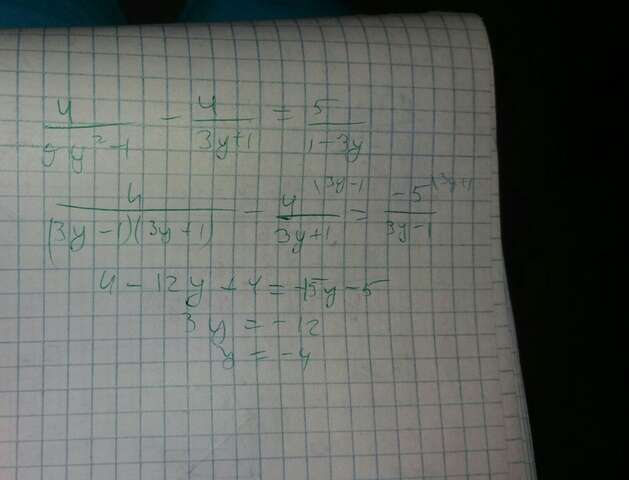 4/(9y²-1) - 4/(3y+1) = 5/(1-3y)
4/((3y-1)(3y+1)) - 4\3y-1/(3y+1) = -5\3y+1/(3y-1)
4-12y+4=-15y-5
3y = -12
y = -4